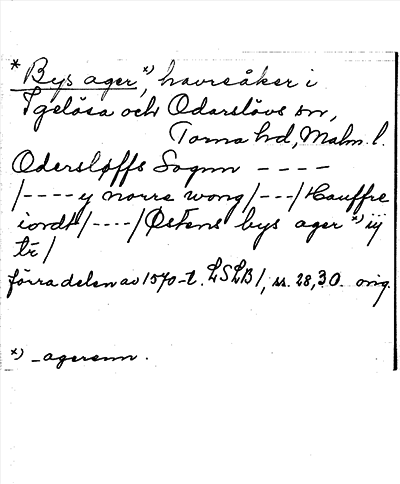 * Bys ager x), havreåker i
Igelösa och Odarslövs sn,
Torna hd, Malm. l.
Oderslöffs Sognn ----
/----y norre wong/---/Hauffre
iordt/----/Østens bys ager x) iij
tr/
förra delen av 1570-t. LSLB 1, ss. 28, 30. orig.
x) -agerenn.